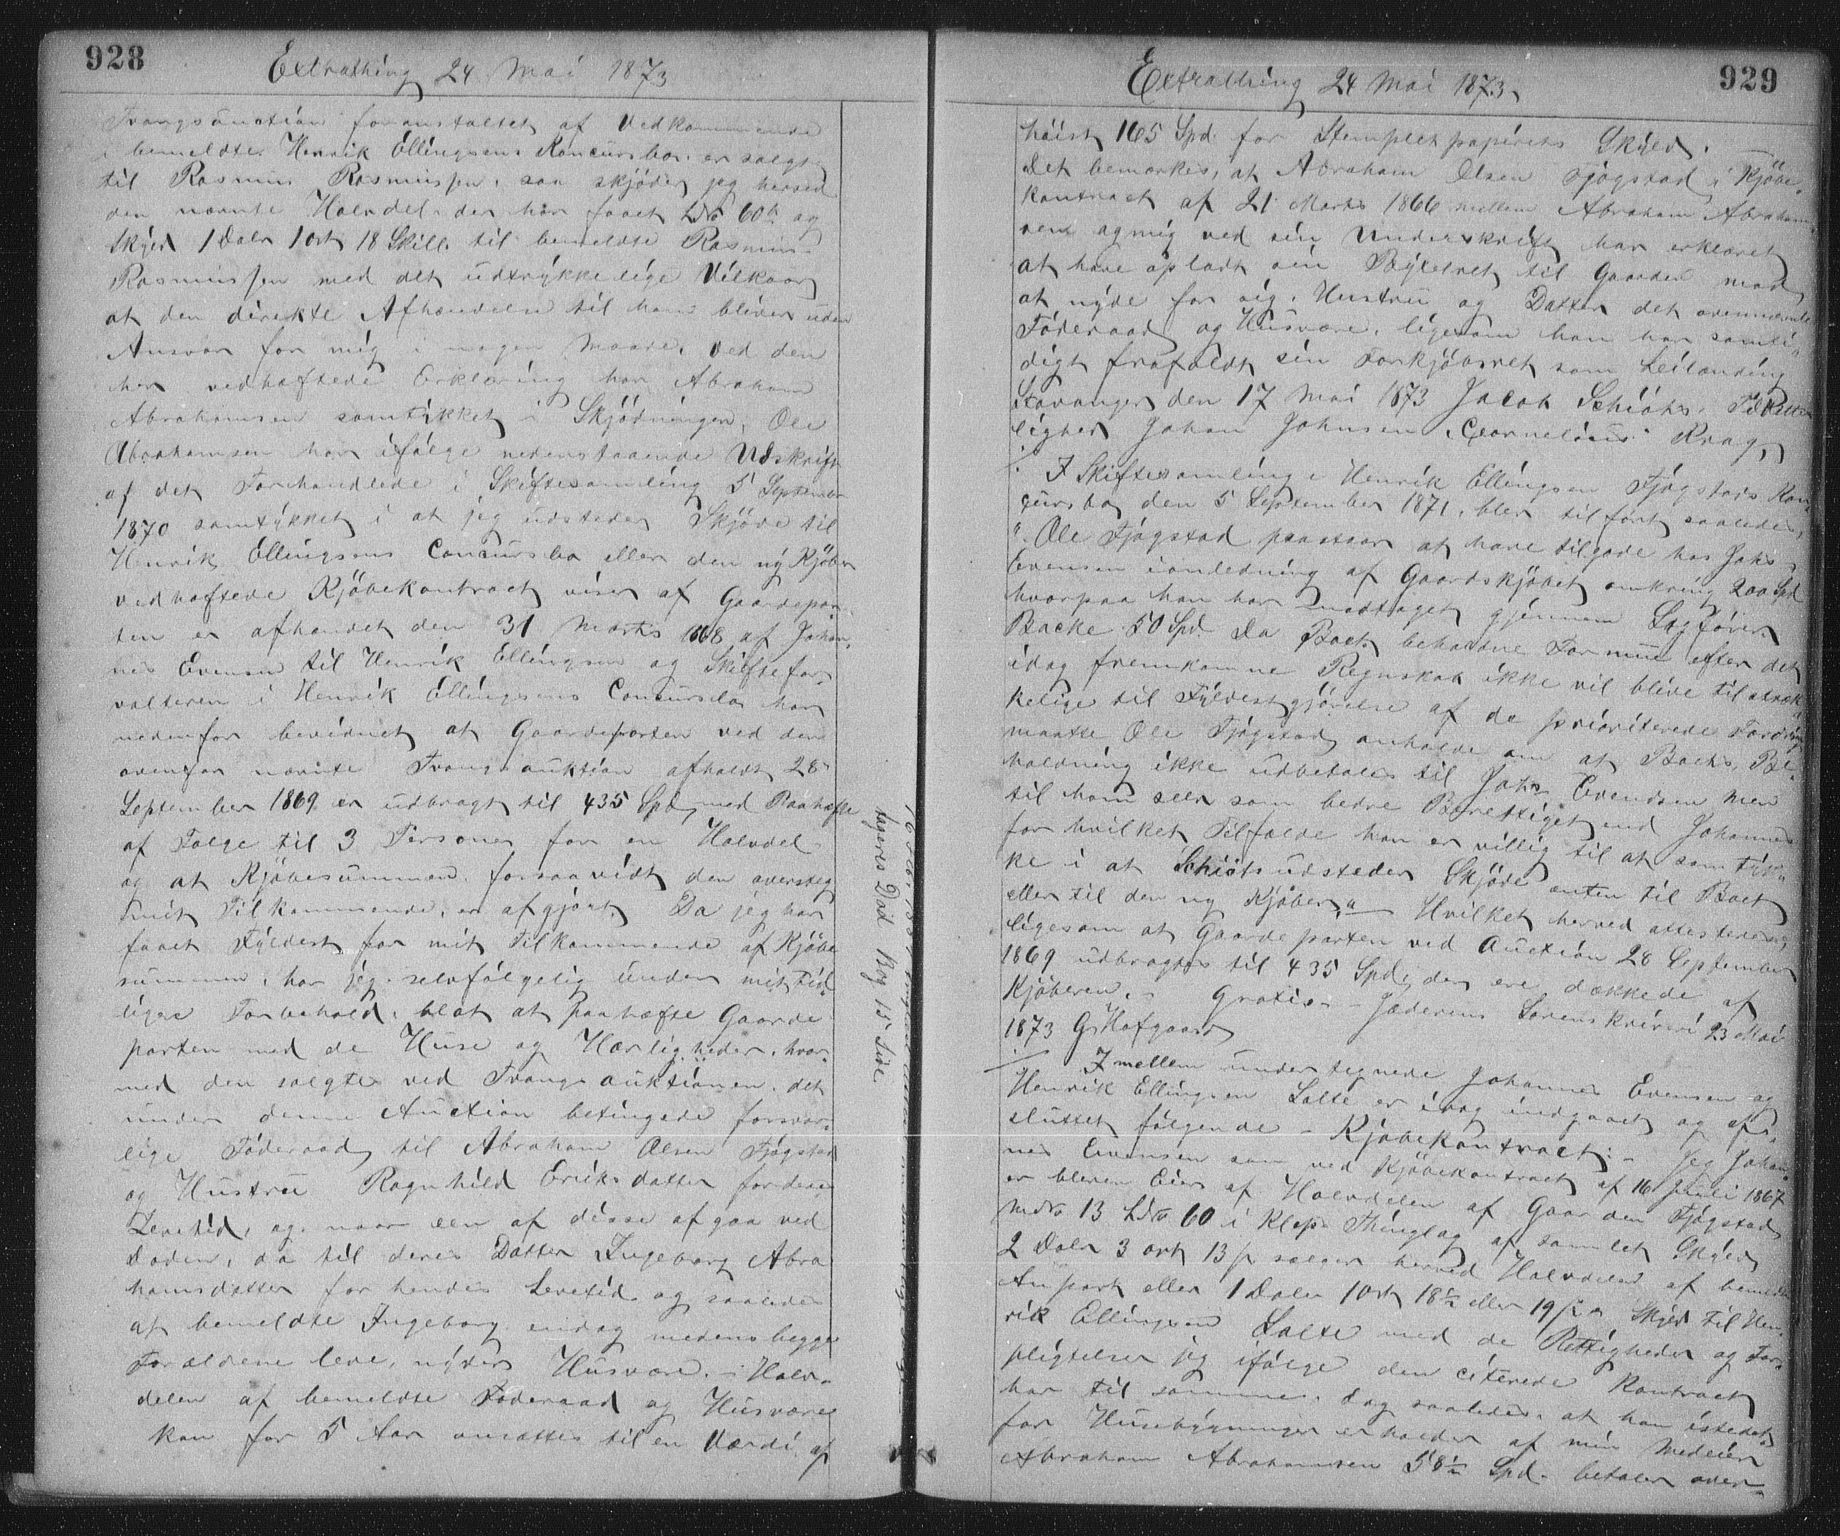 928
Extrathing 24 Mai 1873
Tvangsauction foranstaltet af Vedkommende
i bemeldte Henrik Ellingsens Koncursbo er solgt
til Rasmus Rasmussen, saa skjøder jeg herved
den nævnte Halvdel, der har faaet LNo 60b og
Skyld 1 Daler 1 ort 18 Skill. til bemeldte Rasmus
Rasmussen med det udtrykkelige Vilkaar
at den direkte Afhændelse til ham bliver uden
Ansvar for mig i nogen Maade. Ved den
her vedhæftede Erklæring har Abraham
Abrahamsen samtykket i Skjødningen, Ole
Abrahamsen har ifølge nedenstaaende Udskrift
af det Forhandlede i Skiftesamling 5 September
1870 samtykket i at jeg udsteder Skjøde til
Henrik Ellingsens Concursbo eller den ny Kjøber
vedhæftede Kjøbekontract viser af Gaardepar-
ten er afhændet den 31 Marts 1868 af Johan-
nes Evensen til Henrik Ellingsen og Skiftefor-
valteren i Henrik Ellingsens Concursbo har
nedenfor bevidnet at Gaardeparten ved den
ovenfor nævnte Tvangsauktion afholdt 28
September 1869 er udbragt til 435 Spd, med Paahæfte
af Følge til 3 Personer for en Halvdel
og at Kjøbesummen, forsaavidt den overstiger
mit Tilkommende, er afgjort. Da jeg har
faaet Fyldest for mit Tilkommende af Kjøbe-
summen, har jeg selvfølgelig under mit Tid-
ligere Forbehold, blot at paahæfte Gaarde-
parten med de Huse og Herligheder, hvor-
med den solgtes ved Tvangsauktionen, det
under denne Auction betingede forsvar-
lige Føderaad til Abraham Olsen Fjøgstad
og Hustru Ragnhild Eriksdatter for deres
Levetid, og naar een af disse afgaa ved
Døden, da til deres Datter Ingeborg Abra-
hamsdatter for hendes Levetid og saaledes
at bemeldte Ingeborg endog medens begge
Forældrene leve, nyder Husvære. - Halv-
delen af bemeldte Føderaad og Husvære
kan for 5 Aar ansættes til en Værdi af
tageres Død Bog 15 Side
929
Extrathing 24 Mai 1873
høist 165 Spd for Stempletpapirets Skyld.
Det bemærkes, at Abraham Olsen Fjøgstad i Kjøbe-
kontract af 21 Marts 1866 mellem Abraham Abraham-
sen og mig ved sin Underskrift har erklæret
at have opladt sin Bygselret til Gaarden mod
at nyde for sig, Hustru og Datter det ovennævnte
Føderaad og Husvære, ligesom han har samti-
digt frafaldt sin Forkjøbsret som Leilænding
Stavanger den 17 Mai 1873 Jacob Schiøtz. Til Vitter-
lighed Johan Johnsen Cornelius Krag,
I Skiftesamling i Henrik Ellingsen Fjøgstads Kon-
cursbo den 5 September 1871, blev tilført saaledes,
"Ole Fjøgstad paastaar at have tilgode hos Johs
Evensen i anledning af Gaardskjøbet omkring 200 Spd
hvorpaa han har modtaget gjennem Sagfører
Backe 50 Spd. Da Boets beholdne Formue efter det
idag fremkomne Regnskab ikke vil blive tilstræk-
kelige til Fyldestgjørelse af de prioriterede Fordring
maatte Ole Fjøgstad anholde om at Boets Be-
holdning ikke udbetales til Johs Evendsen men
til ham selv som bedre Berettiget end Johannes
for hvilket Tilfælde han er villig til at samtyk-
ke i at Schiøtz udsteder Skjøde enten til Boet
eller til den ny Kjøber." - Hvilket herved attesteres
ligesom at Gaardeparten ved Auction 28 September
1869 udbragtes til 435 Spd, der ere dækkede af
Kjøberen. - Gratis - Jæderens Sorenskriveri 23 Mai
1873 G Hofgaard
Imellem undertegnede Johannes Evensen og
Henrik Ellingsen Salte er idag indgaaet og af-
sluttet følgende - Kjøbekontract: - Jeg Johan-
nes Evensen som ved Kjøbekontract af 16 Juli 1867
er bleven Eier af Halvdelen af Gaarden Fjøgstad
MNo 13 LNo 60 i Klep Thinglag af samlet Skyld
2 Daler 3 ort 13 ß sælger herved Halvdelen af bemeldte
Anpart eller 1 Daler 1 ort 18½ eller 19 ß Skyld til Hen-
rik Ellingsen Salte med de Rettigheder og For-
pligtelser jeg ifølge den citerede Kontract
har til samme. dog saaledes, at han istedet
for Husebygninger erholder af min Medeier
Abraham Abrahamsen 58½ Spd. betaler over-